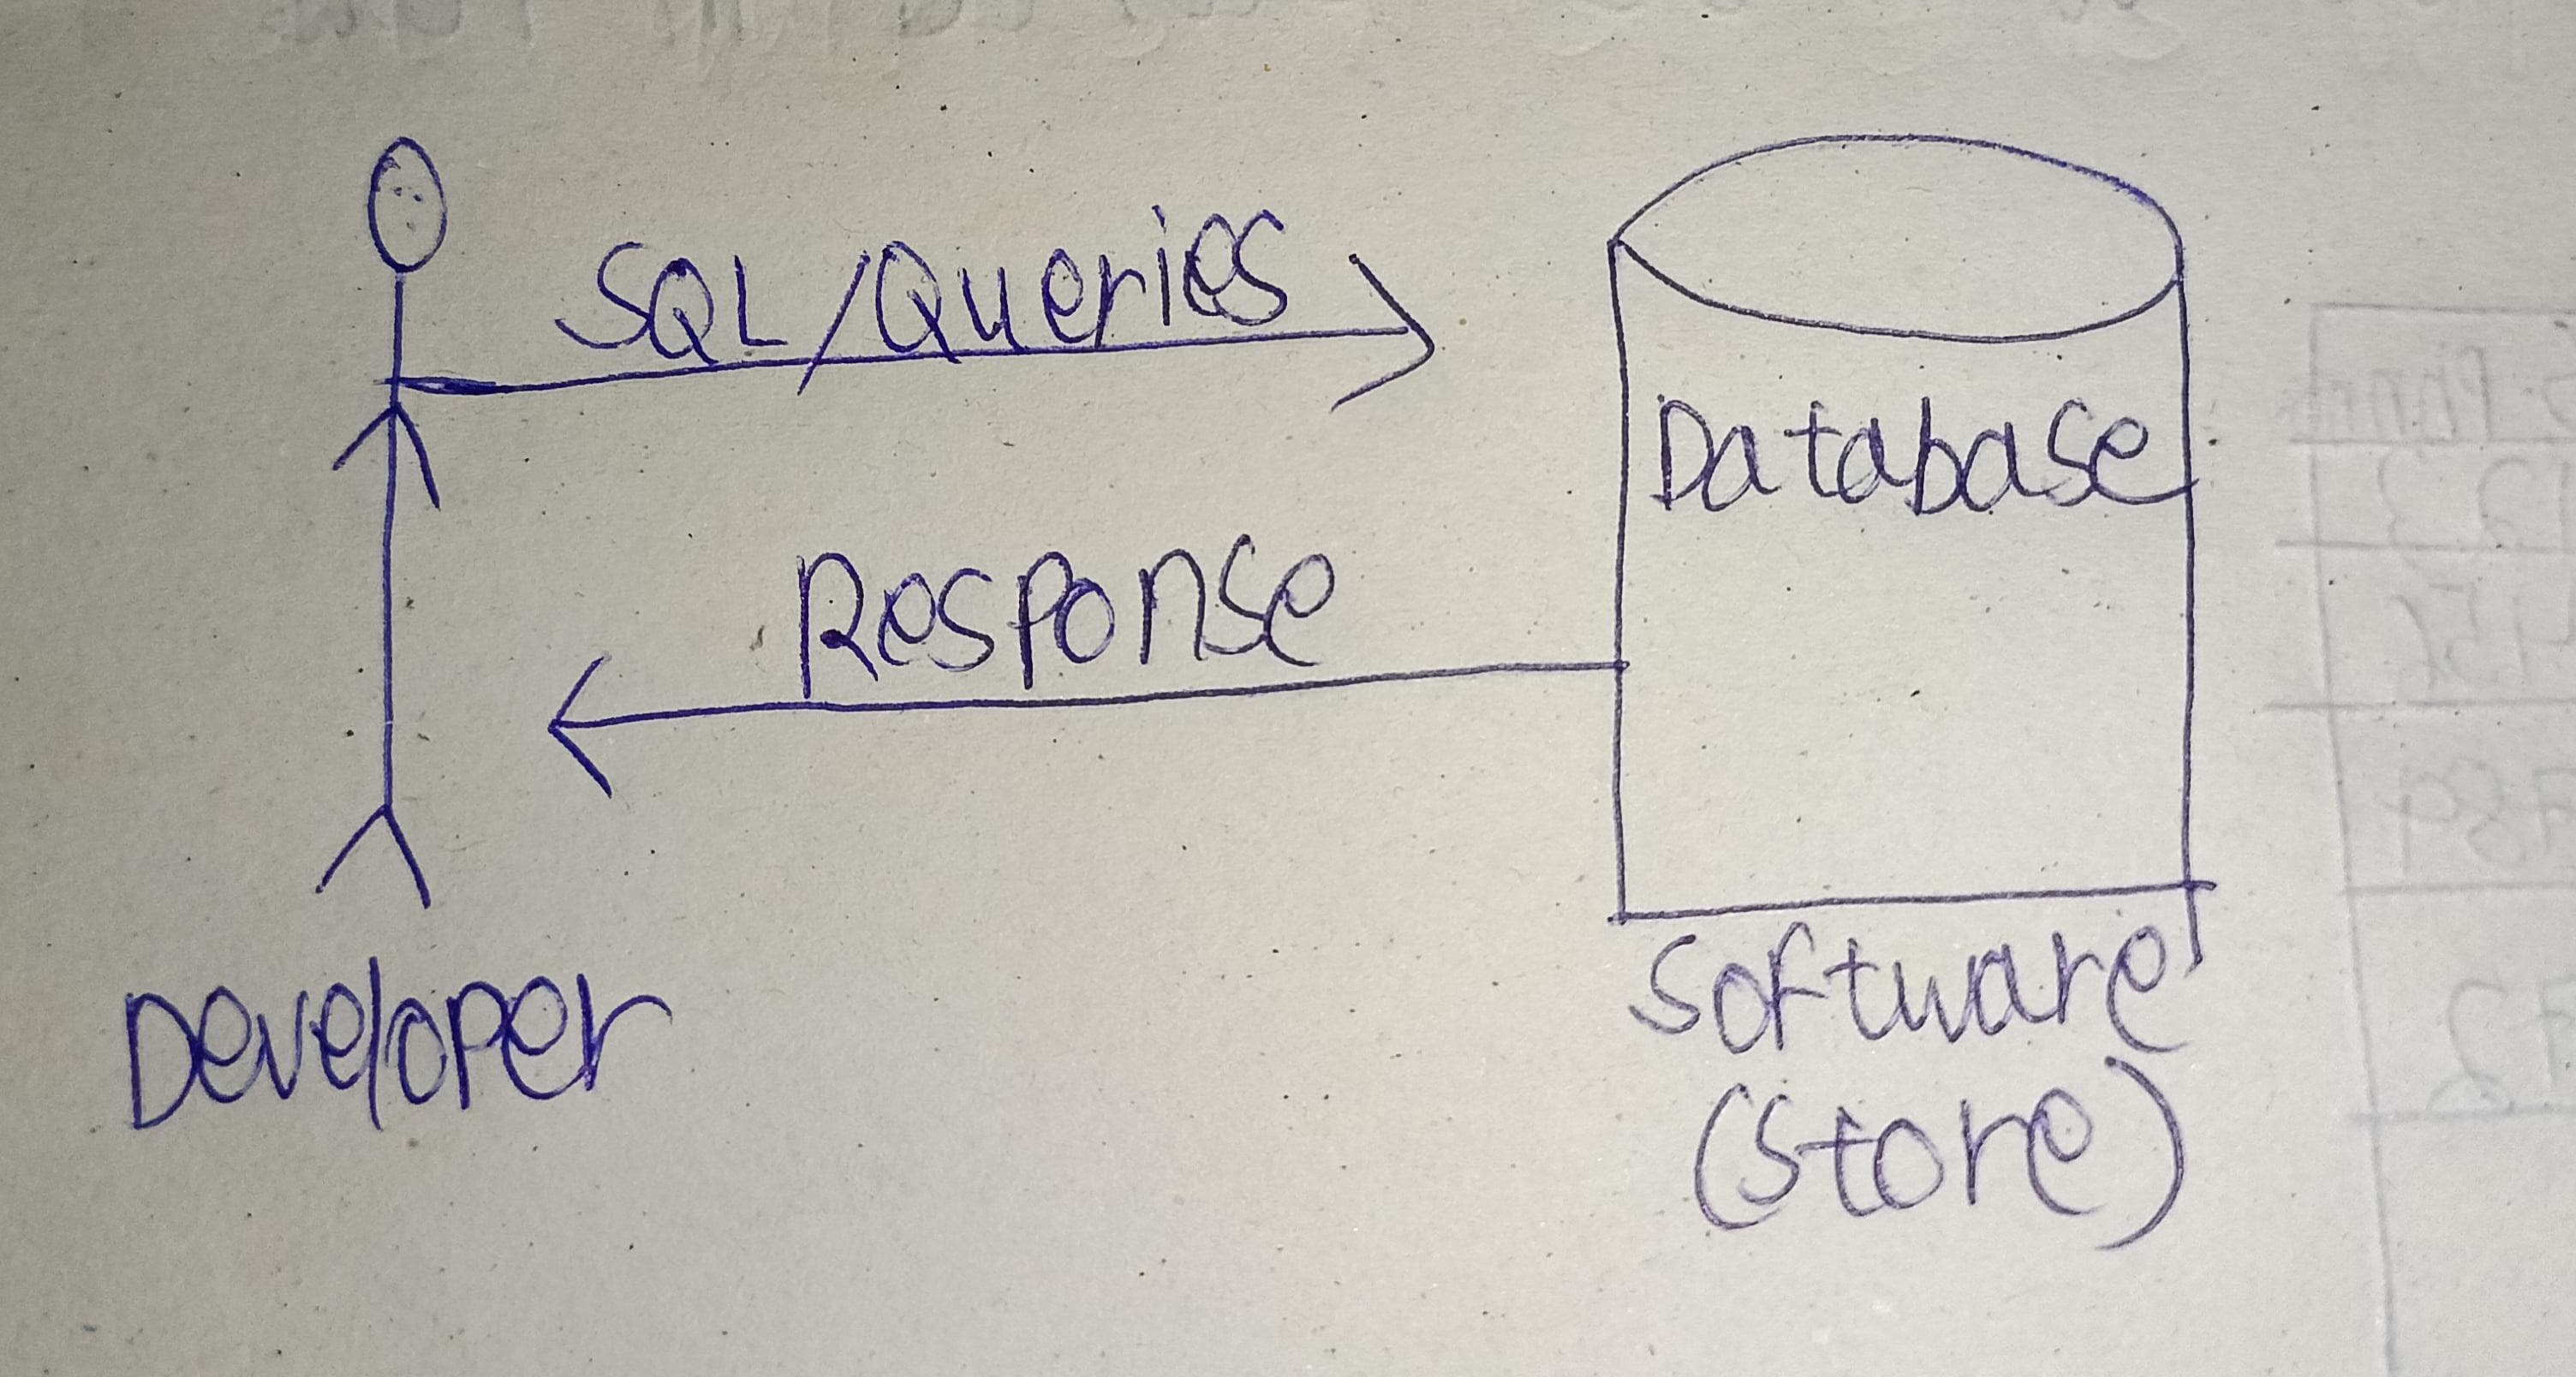 SQL/Queries
Database
Response
Developer
Software
(Store)